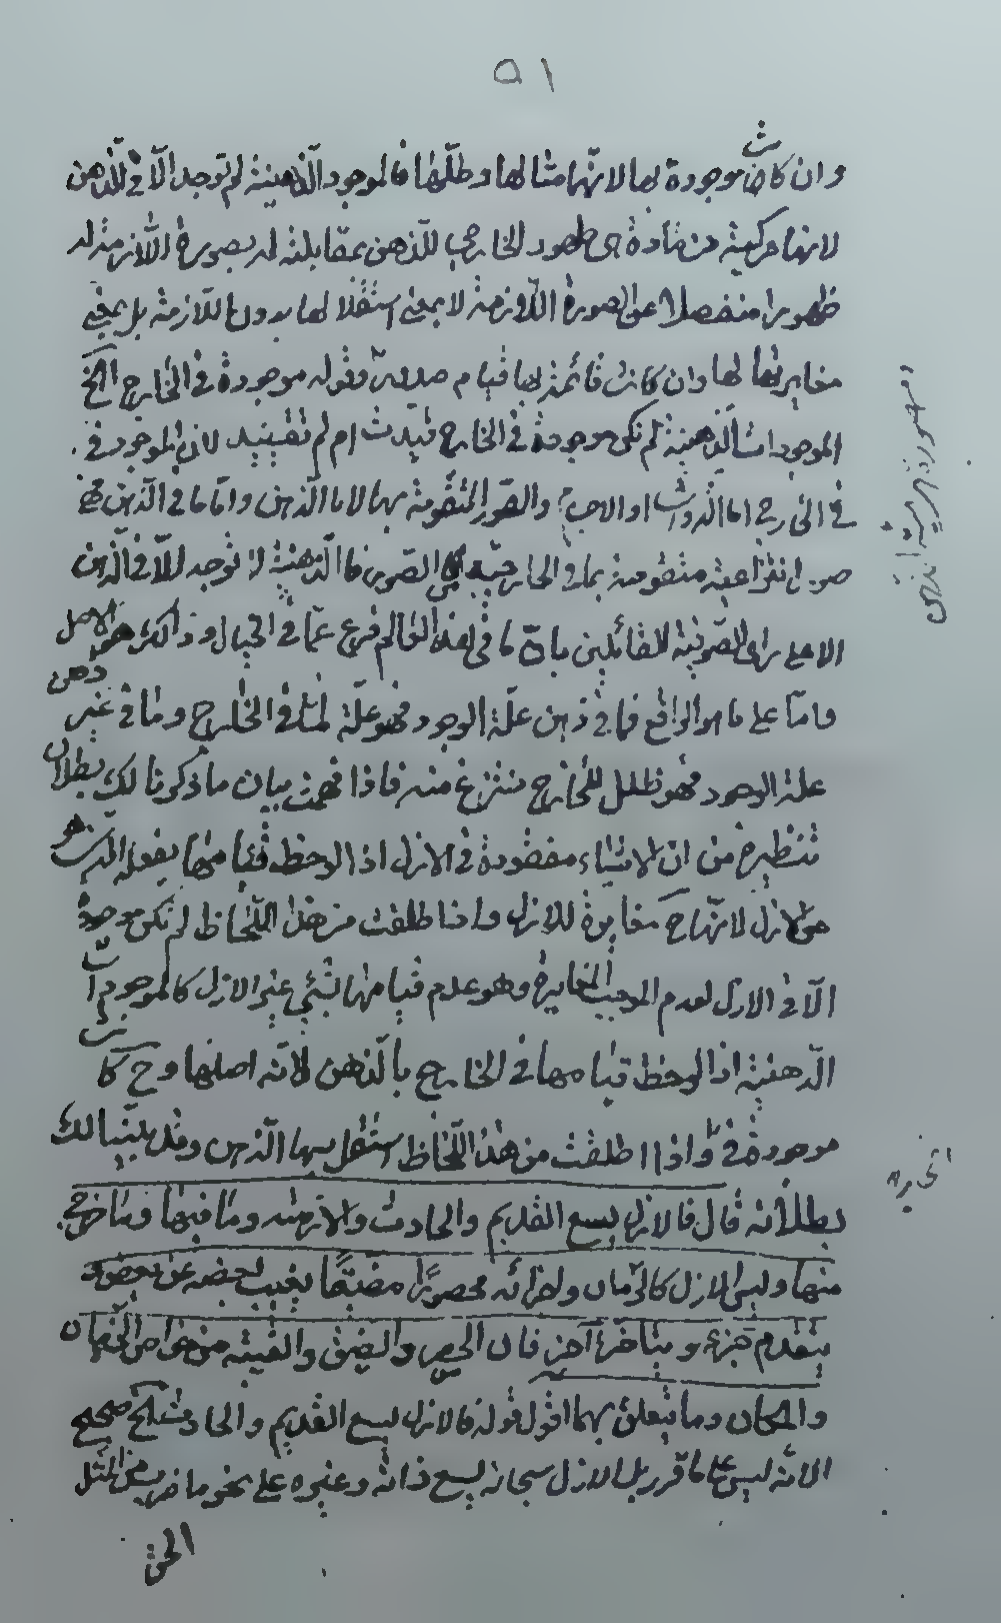 ٥١
وان كانت موجودة بها لانها مثالها وظلها فالموجود الذهنية لم توجد الا في الذهن
لانها مركبة من مادة هي ظهور الخارجي للذهن بمقابلته له بصورة اللازمة له
ظهورا منفصلا عن الصورة اللازمة لا بمعنى استقلالها بدون اللازمة بل بمعنى
مغايرتها لها وان كانت قائمة بها قيام صدور فقوله موجودة في الخارج الخ
الموجودات الذهنية لم تكن موجودة في الخارج قيدت ام لم تقيد لان الموجود في
في الخارج اما الذوات او والصور المتقومة بها لا ما الذهن واما ما في الذهن فهي
صور انتزاعية متقومة بما في الخارجية الصور فالذهنية لا توجد الا في الذهن
الا على راي الصوفية القائلين بان ما في هذا العالم فرع عما في الخيال وذاك هو الاصل
واما على ما هو الواقع فما في ذهن علة الوجود فهو علة لما في الخارج وما في غير ذهن
علة الوجود فهو ظلل للخارج منتزع منه فاذا فهمت بيان ما ذكرنا لك بطلان
تنظيره من ان الاشياء مفقودة في الازل اذا لوحظ قيامها بفعله الذي هو
الازل لانها ح مغايرة للازل واذا اطلقت من هذا اللحاظ لم تكن موجودة
الا في الازل لعدم الموجب المغايرة وهو عدم قيامها لشيء غير الازل كالموجودات
الذهنية اذا لوحظ قيامها في الخارج بالذهن لانه اصلها وح كانت
موجودة في واذا اطلقت من هذا اللحاظ استقل بها الذهن وقد بينا لك
بطلانه قال فالازل يسع القديم والحادث والازمنة وما فيها وما خرج
منها وليس الازل كالزمان واجزائه محصورا مضيقا يغيب بعضه عن بعض و
يتقدم جزء ويتاخر آخر فان الحصر والضيق والغيبة من خواص الزمان
والمكان وما يتعلق بهما اقول قوله فالازل يسع القديم والحادث صحيح
الا انه ليس على ما قرر بل الازل سبحانه يسع ذاته وغيره على نحو ما ضربه من المثل
الحق